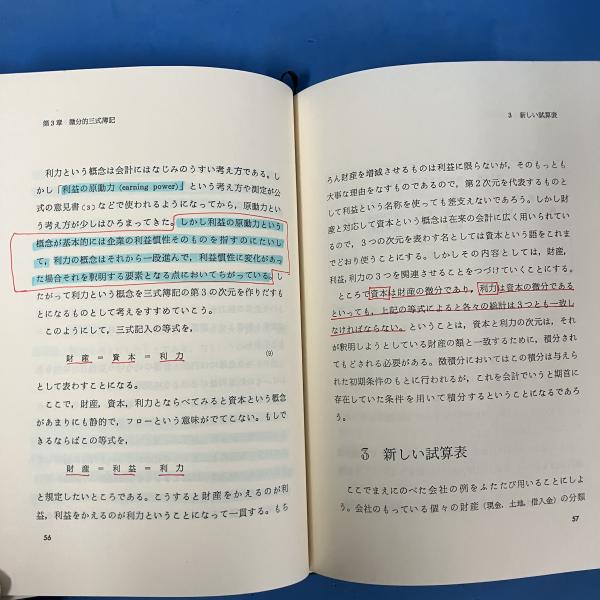 第3章 微分的三式簿記
利力という概念は会計にはなじみのうすい考え方である。し
かし「利益の原動力 (earning power)」という考え方や測定が公
式の意見書(3)などで使われるようになってから，原動力とい
う考え方が少しはひろまってきた。しかし利益の原動力という
概念が基本的には企業の利益慣性そのものを指すのにたいし
て，利力の概念はそれから一段進んで，利益慣性に変化があっ
た場合それを釈明する要素となる点においてちがっている。し
たがって利力という概念を三式簿記の第3の次元を作りだすも
とになるものとして考えをすすめていこう。
このようにして，三式記入の等式を，
財産 ＝ 資本 ＝ 利力 (9)
として表わすことになる。
ここで，財産，資本，利力とならべてみると資本という概念
があまりにも静的で，フローという意味がでてこない。もしで
きるならばこの等式を，
財産 ＝ 利益 ＝ 利力
と規定したいところである。こうすると財産をかえるのが利
益，利益をかえるのが利力ということになって一貫する。もち
56
3 新しい試算表
ろん財産を増減させるものは利益に限らないが，そのもっとも
大事な理由をなすものであるので，第2次元を代表するものと
して利益という名称を使っても差支えないであろう。しかし財
産と対応して資本という概念は在来の会計に広く用いられてい
るので，3つの次元を表わす名としては資本という語をこれま
でどおり使うことにする。しかしその内容としては，財産，
利益，利力の3つを関連させることをつづけていくことにする。
ところで資本は財産の微分であり，利力は資本の微分である
といっても，上記の等式によると各々の総計は3つとも一致し
なければならない。ということは，資本と利力の次元は，それ
が釈明しようとしている財産の額と一致するために，積分され
てもどされる必要がある。微積分においてはこの積分は与えら
れた初期条件のもとに行われるが，これを会計でいうと期首に
存在していた条件を用いて積分するということになるであろ
う。
3 新しい試算表
ここでまえにのべた会社の例をふたたび用いることにしよ
う。会社のもっている個々の財産（現金，土地，借入金）の分類
57